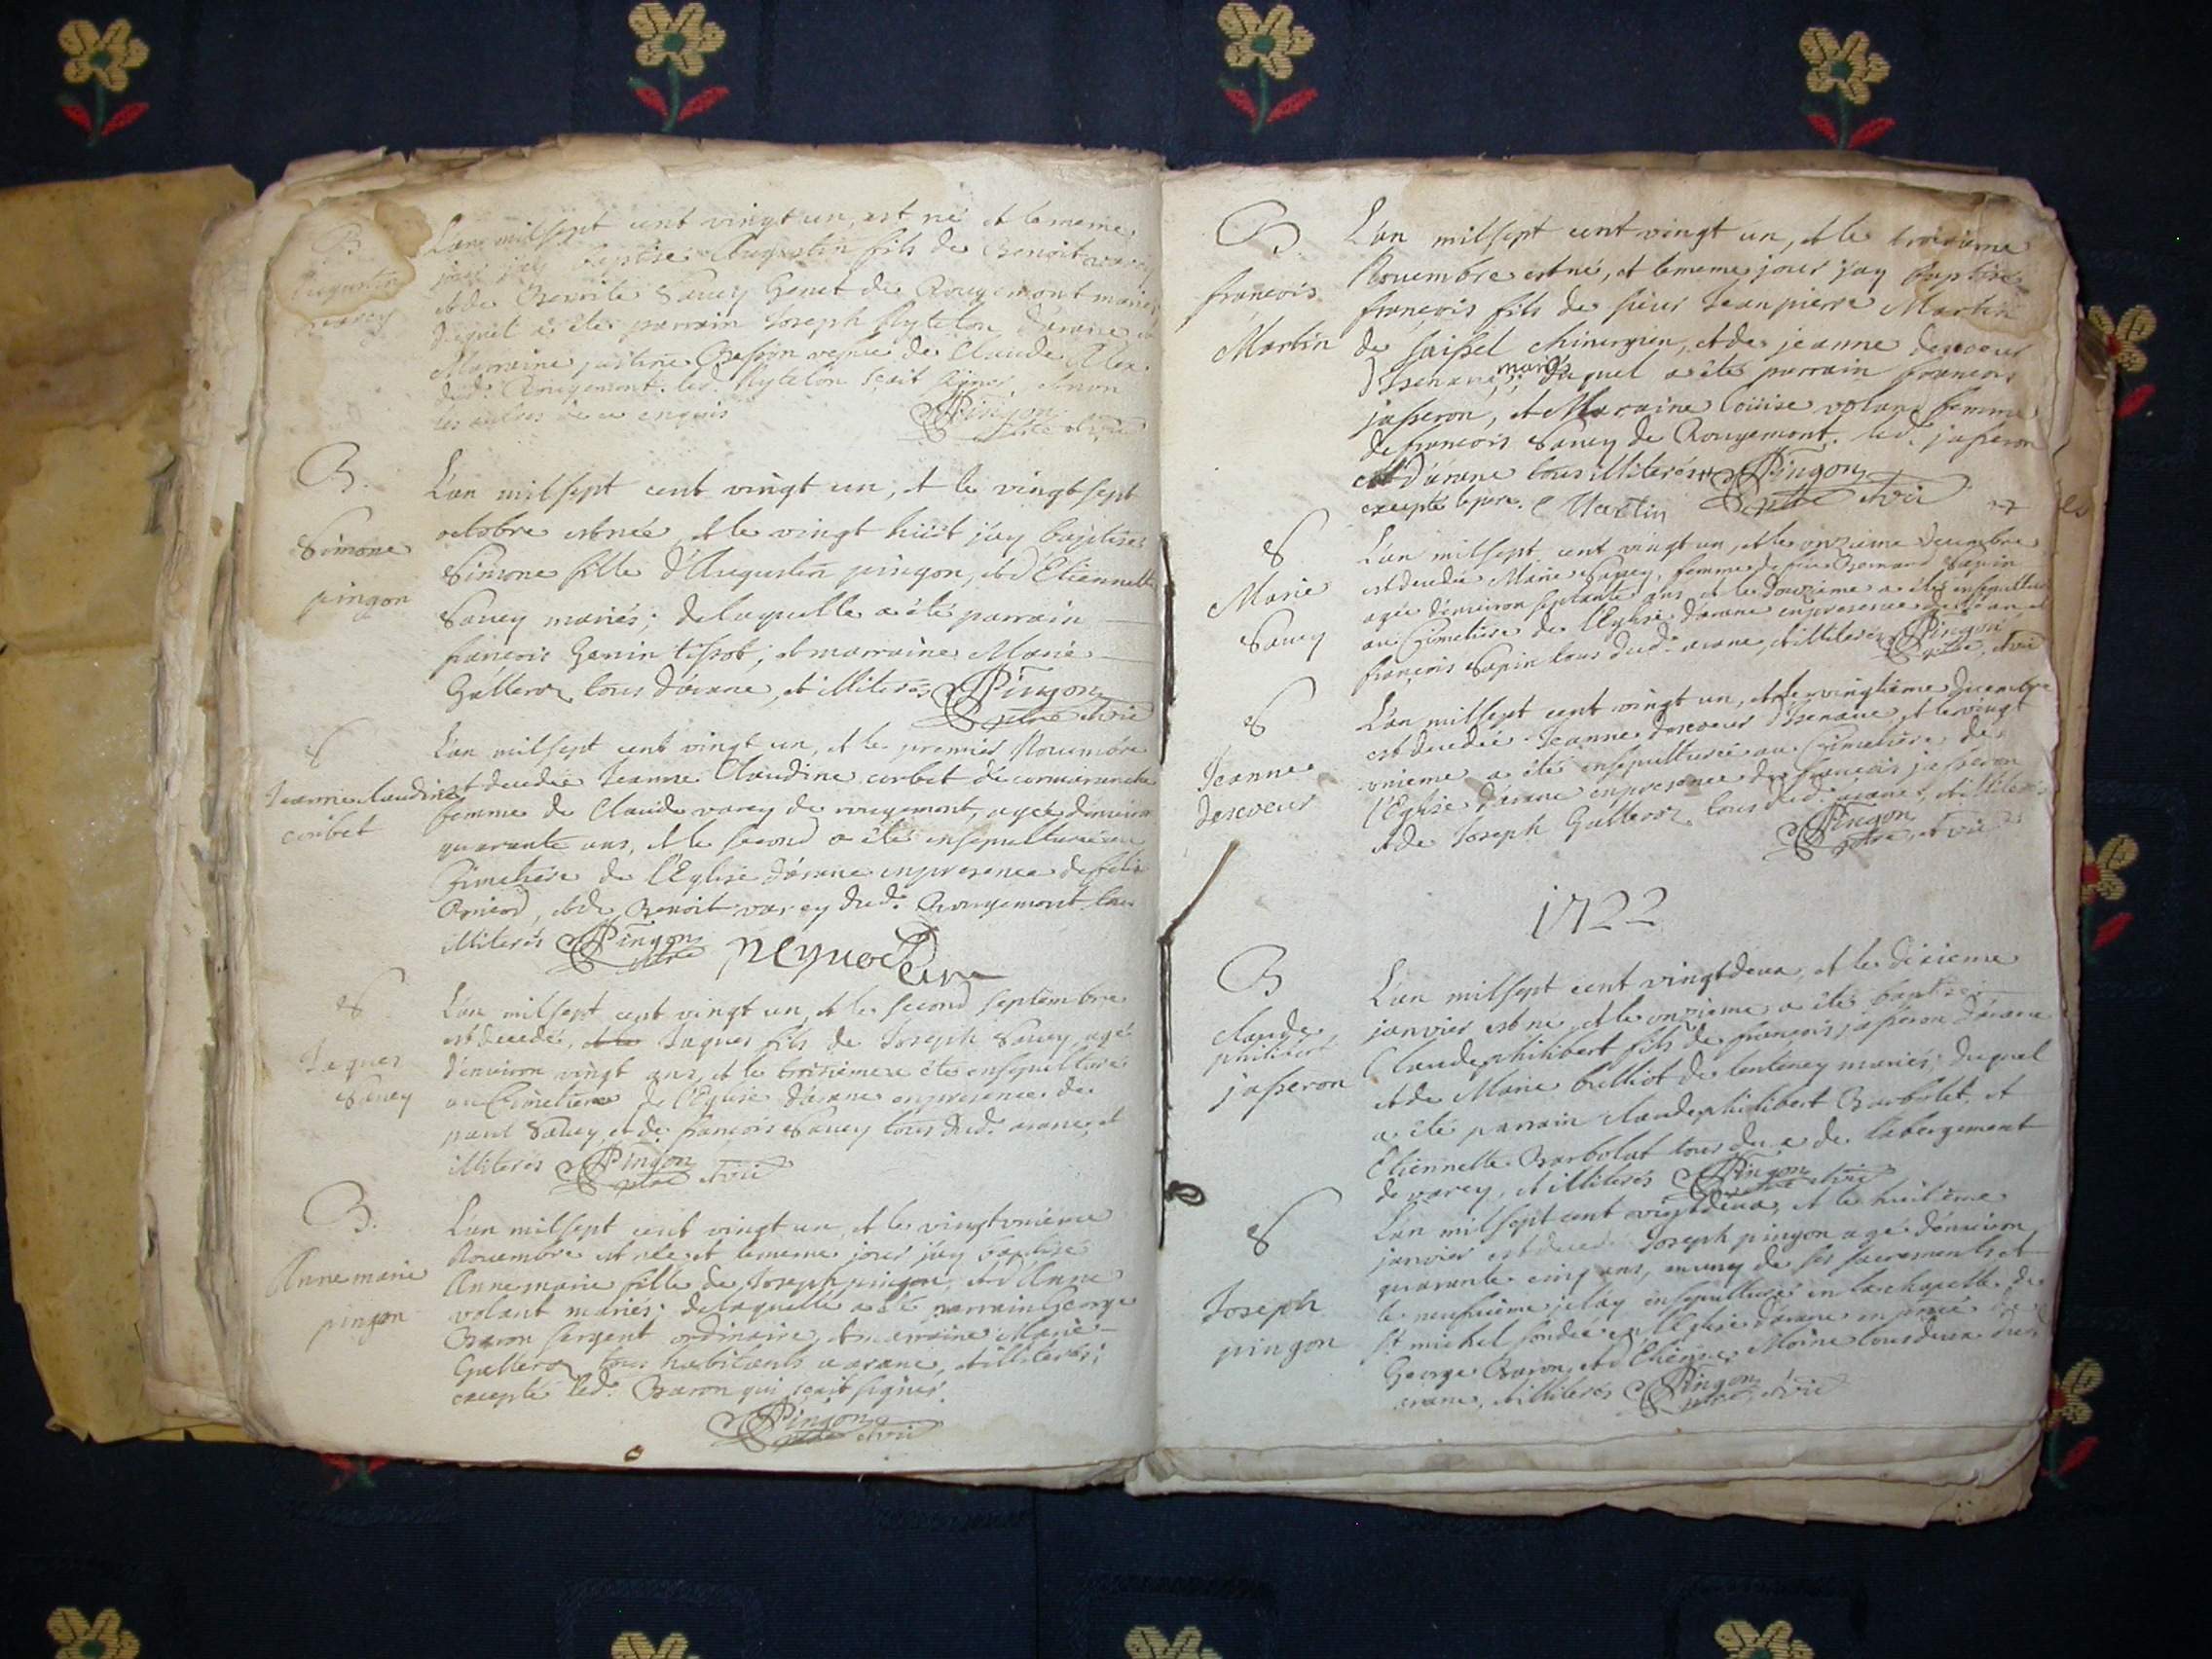 B
Augustin
varey
L'an milsept cent vingt un, est né et le meme
jour j'ay baptisé Augustin fils de Benoit varey
et de Benoite Savey Genet de Rougemont mariés
duquel a été parrain Joseph Rytelon d'arane et
Marraine justine Besson vefue de Claude
dud. Rougemont. led. Rytelon scait signer, et non
les autres de ce enquis
Pingon
ptre et vic
B.
Simone
pingon
L'an milsept cent vingt un, et le vingt sept
octobre est née, et le vingt huit j'ay baptisé
Simone fille d'Augustin pingon, et d'Etiennette
Savey mariés; de laquelle a été parrain
francois Genin tissot, et marraine Marie
Galleroz tous d'arane, et illiterés Pingon
ptre et vic
S
Jeanne Claudine
corbet
L'an milsept cent vingt un, et le premier Nouembre
est decedée Jeanne Claudine corbet de cormaranche
femme de Claude varey de rougemont, agée d'enuiron
quarante ans, et le second a été ensepulturée au
Cimetiere de l'Eglise d'arane en presence de felix
et de Benoit varey dud. Rougemont tous
illiterés Pingon
ptre
S
Jaques
Savey
L'an milsept cent vingt un, et le second septembre
est decedé, Jaques fils de Joseph Savey agé
d'enuiron vingt ans, et le troisieme a été ensepulturé
au Cimetiere de l'Eglise d'arane en presence de
paul Savey, et de francois Savey tous dud. arane, et
illiterés Pingon
ptre et vic
B.
Anne marie
pingon
L'an milsept cent vingt un, et le vingt unieme
Nouembre est née et le meme jour j'ay baptisé
Anne marie fille de Joseph pingon, et d'Anne
volant mariés; de laquelle a été parrain George
Baron sergent ordinaire, et marraine Marie
Galleroz tous habitants a arane, et illiterés;
excepté led. Baron qui scait signer.
Pingon
ptre et vic
B.
francois
Martin
L'an milsept cent vingt un, et le troisieme
Nouembre est né, et le meme jour j'ay baptisé
francois fils de sieur Jean pierre Martin
de saissel chirurgien, et de jeanne descoeur
d'Izenaue, mariés; duquel a été parrain francois
jasseron, et Marraine Loüise volant femme
de francois Savey de Rougemont. led. jasseron
est d'arane tous illiterés Pingon
excepté le pere. C Martin ptre et vic
S
Marie
Savey
L'an milsept cent vingt un, et le onzieme decembre
est decedée Marie Savey, femme de feu Bernard Sapin
agée d'enuiron septante ans, et le douzieme a été ensepulturée
au Cimetiere de l'Eglise d'arane en presence de Jean et
françois Sapin tous dud. arane, et illiterés Pingon
ptre, et vic
S
Jeanne
descoeur
L'an milsept cent vingt un, et le vingtieme decembre
est decedée Jeanne descoeur d'Izenaue et le vingt
unieme a été ensepulturée au Cimetiere de
l'Eglise d'arane en presence de francois jasseron
et de Joseph Galleroz tous dud. arane, et illiterés
Pingon
ptre, et vic
1722
B
Claude
philibert
jasseron
L'an milsept cent vingt deux, et le dixieme
janvier est né, et le onzieme a été baptisé
Claude philibert fils de francois jasseron d'arane
et de Marie brilliot de lentenay mariés; duquel
a été parrain claude philibert Barbolat, et
Etiennette Barbolat tous deux de l'abergement
de varey, et illiterés Pingon
ptre et vic
S
Joseph
pingon
L'an milsept cent vingt deux, et le huitième
janvier est decedé Joseph pingon agé d'enuiron
quarante cinq ans, muny de ses sacrements et
le neufuième je l'ay ensepulturé en la chapelle de
St. michel fondée en l'Eglise d'arane en présence de
George Baron, et d'Etienne Moine tous deux dud.
arane, et illiterés Pingon
ptre, et vic